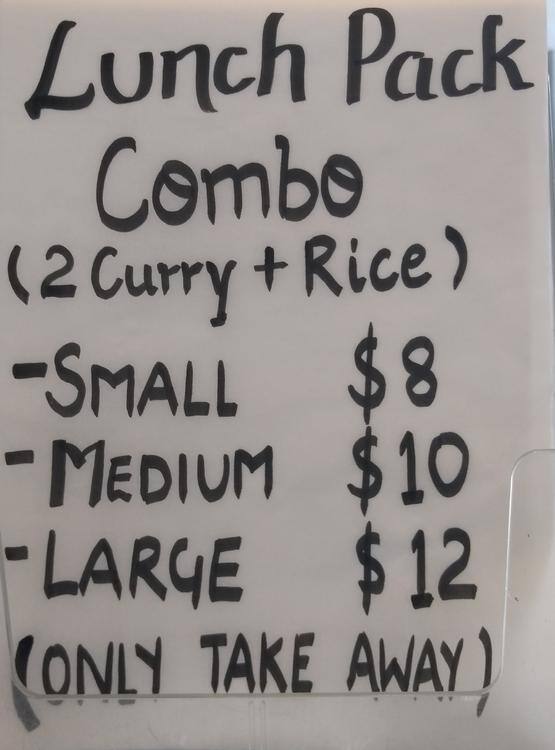 Lunch Pack
Combo
(2 Curry + Rice)
- SMALL $8
- MEDIUM $10
- LARGE $12
(ONLY TAKE AWAY)